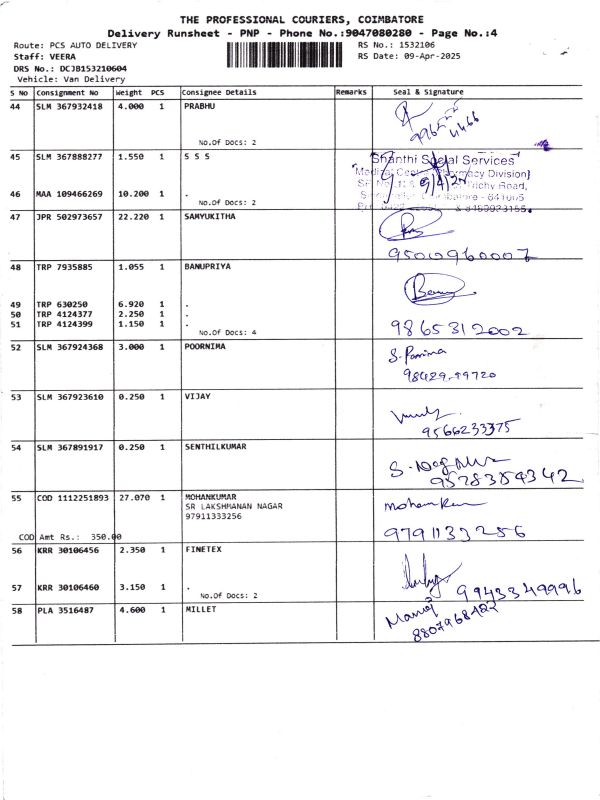 THE PROFESSIONAL COURIERS, COIMBATORE
Delivery Runsheet - PNP - Phone No.:9047080280 - Page No.:4
Route: PCS AUTO DELIVERY
RS No.: 1532106
Staff: VEERA
RS Date: 09-Apr-2025
DRS No.: DCJB153210604
Vehicle: Van Delivery
S No Consignment No Weight PCS Consignee Details Remarks Seal & Signature
44 SLM 367932418 4.000 1 PRABHU
No.Of Docs: 2
45 SLM 367888277 1.550 1 S S S
Shanthi Social Services
Medical Centre (Pharmacy Division)
Trichy Road,
46 MAA 109466269 10.200 1 .
No.Of Docs: 2
47 JPR 502973657 22.220 1 SAMYUKITHA
9500960007
48 TRP 7935885 1.055 1 BANUPRIYA
49 TRP 630250 6.920 1 .
50 TRP 4124377 2.250 1 .
51 TRP 4124399 1.150 1 .
No.Of Docs: 4
9865312002
52 SLM 367924368 3.000 1 POORNIMA
98429-99720
53 SLM 367923610 0.250 1 VIJAY
9566233375
54 SLM 367891917 0.250 1 SENTHILKUMAR
9578384342
55 COD 1112251893 27.070 1 MOHANKUMAR
SR LAKSHMANAN NAGAR
97911333256
9791133256
COD Amt Rs.: 350.00
56 KRR 30106456 2.350 1 FINETEX
57 KRR 30106460 3.150 1 .
No.Of Docs: 2
9943349996
58 PLA 3516487 4.600 1 MILLET
Manoj